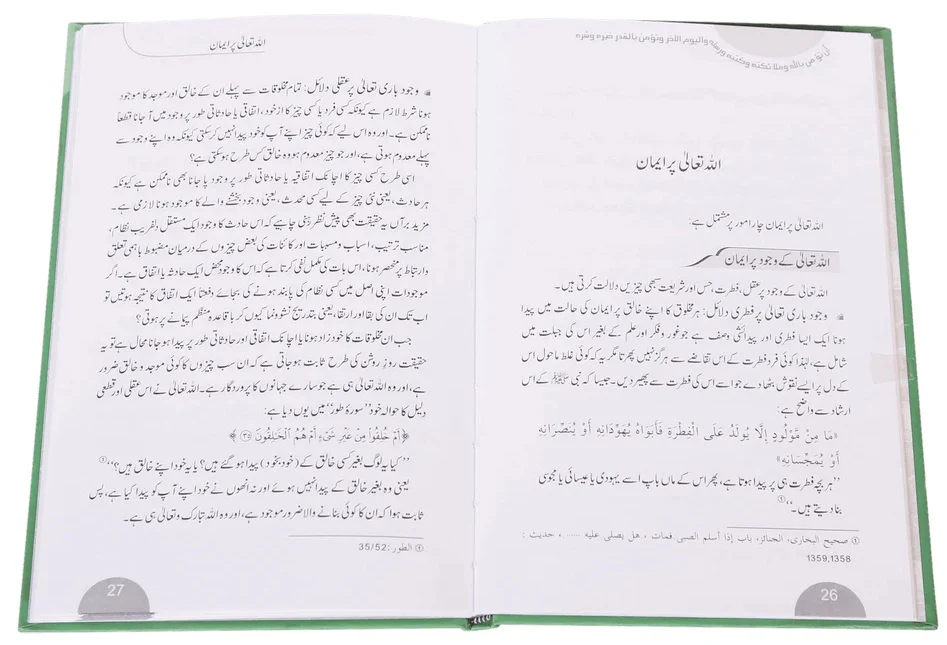 أن تؤمن بالله وملائكته وكتبه ورسله واليوم الآخر وتؤمن بالقدر خيره وشره
اللہ تعالیٰ پر ایمان
اللہ تعالیٰ پر ایمان چار امور پر مشتمل ہے:
اللہ تعالیٰ کے وجود پر ایمان
اللہ تعالیٰ کے وجود پر عقل، فطرت، حس اور شریعت سبھی چیزیں دلالت کرتی ہیں۔
وجود باری تعالیٰ پر فطری دلائل: ہر مخلوق کا اپنے خالق پر ایمان کی حالت میں پیدا
ہونا ایک ایسا فطری اور پیدائشی وصف ہے جو غور و فکر اور علم کے بغیر اس کی جبلت میں
شامل ہے، لہٰذا کوئی فرد فطرت کے اس تقاضے سے ہرگز نہیں پھرتا مگر یہ کہ کوئی غلط ماحول اس
کے دل پر ایسے نقوش بٹھا دے جو اسے اس کی فطرت سے پھیر دیں۔ جیسا کہ نبی ﷺ کے اس
ارشاد سے واضح ہے:
«مَا مِنْ مَّوْلُودٍ إِلَّا يُولَدُ عَلَى الْفِطْرَةِ فَأَبَوَاهُ يُهَوِّدَانِهِ أَوْ يُنَصِّرَانِهِ
أَوْ يُمَجِّسَانِهِ»
’’ہر بچہ فطرت ہی پر پیدا ہوتا ہے، پھر اس کے ماں باپ اسے یہودی یا عیسائی یا مجوسی
بنا دیتے ہیں۔‘‘①
① صحیح البخاری، الجنائز، باب إذا أسلم الصبي فمات ، هل يصلى عليه ...... ، حدیث :
1359,1358
26
اللہ تعالیٰ پر ایمان
وجود باری تعالیٰ پر عقلی دلائل: تمام مخلوقات سے پہلے ان کے خالق اور موجد کا موجود
ہونا شرط لازم ہے کیونکہ کسی فرد یا کسی چیز کا از خود، اتفاقی یا حادثاتی طور پر وجود میں آ جانا قطعاً
ناممکن ہے۔ اور وہ اس لیے کہ کوئی چیز اپنے آپ کو خود پیدا نہیں کر سکتی کیونکہ وہ اپنے وجود سے
پہلے معدوم ہوتی ہے، اور جو چیز معدوم ہو وہ خالق کس طرح ہو سکتی ہے؟
اسی طرح کسی چیز کا اچانک اتفاقیہ یا حادثاتی طور پر وجود پا جانا بھی ناممکن ہے کیونکہ
ہر حادث، یعنی نئی چیز کے لیے کسی محدث، یعنی وجود بخشنے والے کا موجود ہونا لازمی ہے۔
مزید برآں یہ حقیقت بھی پیش نظر رہنی چاہیے کہ اس حادث کا وجود ایک مستقل دلفریب نظام،
مناسب ترتیب، اسباب و مسببات اور کائنات کی بعض چیزوں کے درمیان مضبوط باہمی تعلق
و ارتباط پر منحصر ہونا، اس بات کی مکمل نفی کرتا ہے کہ اس کا وجود محض ایک حادثہ یا اتفاق ہے۔ اگر
موجودات اپنی اصل میں کسی نظام کی پابند ہونے کی بجائے دفعتاً ایک اتفاق کا نتیجہ ہوتیں تو
اب تک ان کی بقا اور ارتقا، یعنی بتدریج نشوونما کیوں کر باقاعدہ منظم پیمانے پر ہوتی؟
جب ان مخلوقات کا خود زاد ہونا یا اچانک اتفاقی اور حادثاتی طور پر پیدا ہو جانا محال ہے تو یہ
حقیقت روز روشن کی طرح ثابت ہو جاتی ہے کہ ان سب چیزوں کا کوئی موجد و خالق ضرور
ہے، اور وہ اللہ تعالیٰ ہی ہے جو سارے جہانوں کا پروردگار ہے۔ اللہ تعالیٰ نے اس عقلی اور قطعی
دلیل کا حوالہ خود ’’سورۂ طور‘‘ میں یوں دیا ہے:
﴿أَمْ خُلِقُوا مِنْ غَيْرِ شَيْءٍ أَمْ هُمُ الْخَالِقُونَ ﴿٣٥﴾﴾
’’کیا یہ لوگ بغیر کسی خالق کے (خود بخود) پیدا ہو گئے ہیں؟ یا یہ خود اپنے خالق ہیں؟‘‘①
یعنی وہ بغیر خالق کے پیدا نہیں ہوئے اور نہ انھوں نے خود اپنے آپ کو پیدا کیا ہے، پس
ثابت ہوا کہ ان کا کوئی بنانے والا ضرور موجود ہے، اور وہ اللہ تبارک و تعالیٰ ہی ہے۔
① الطور: 35/52
27